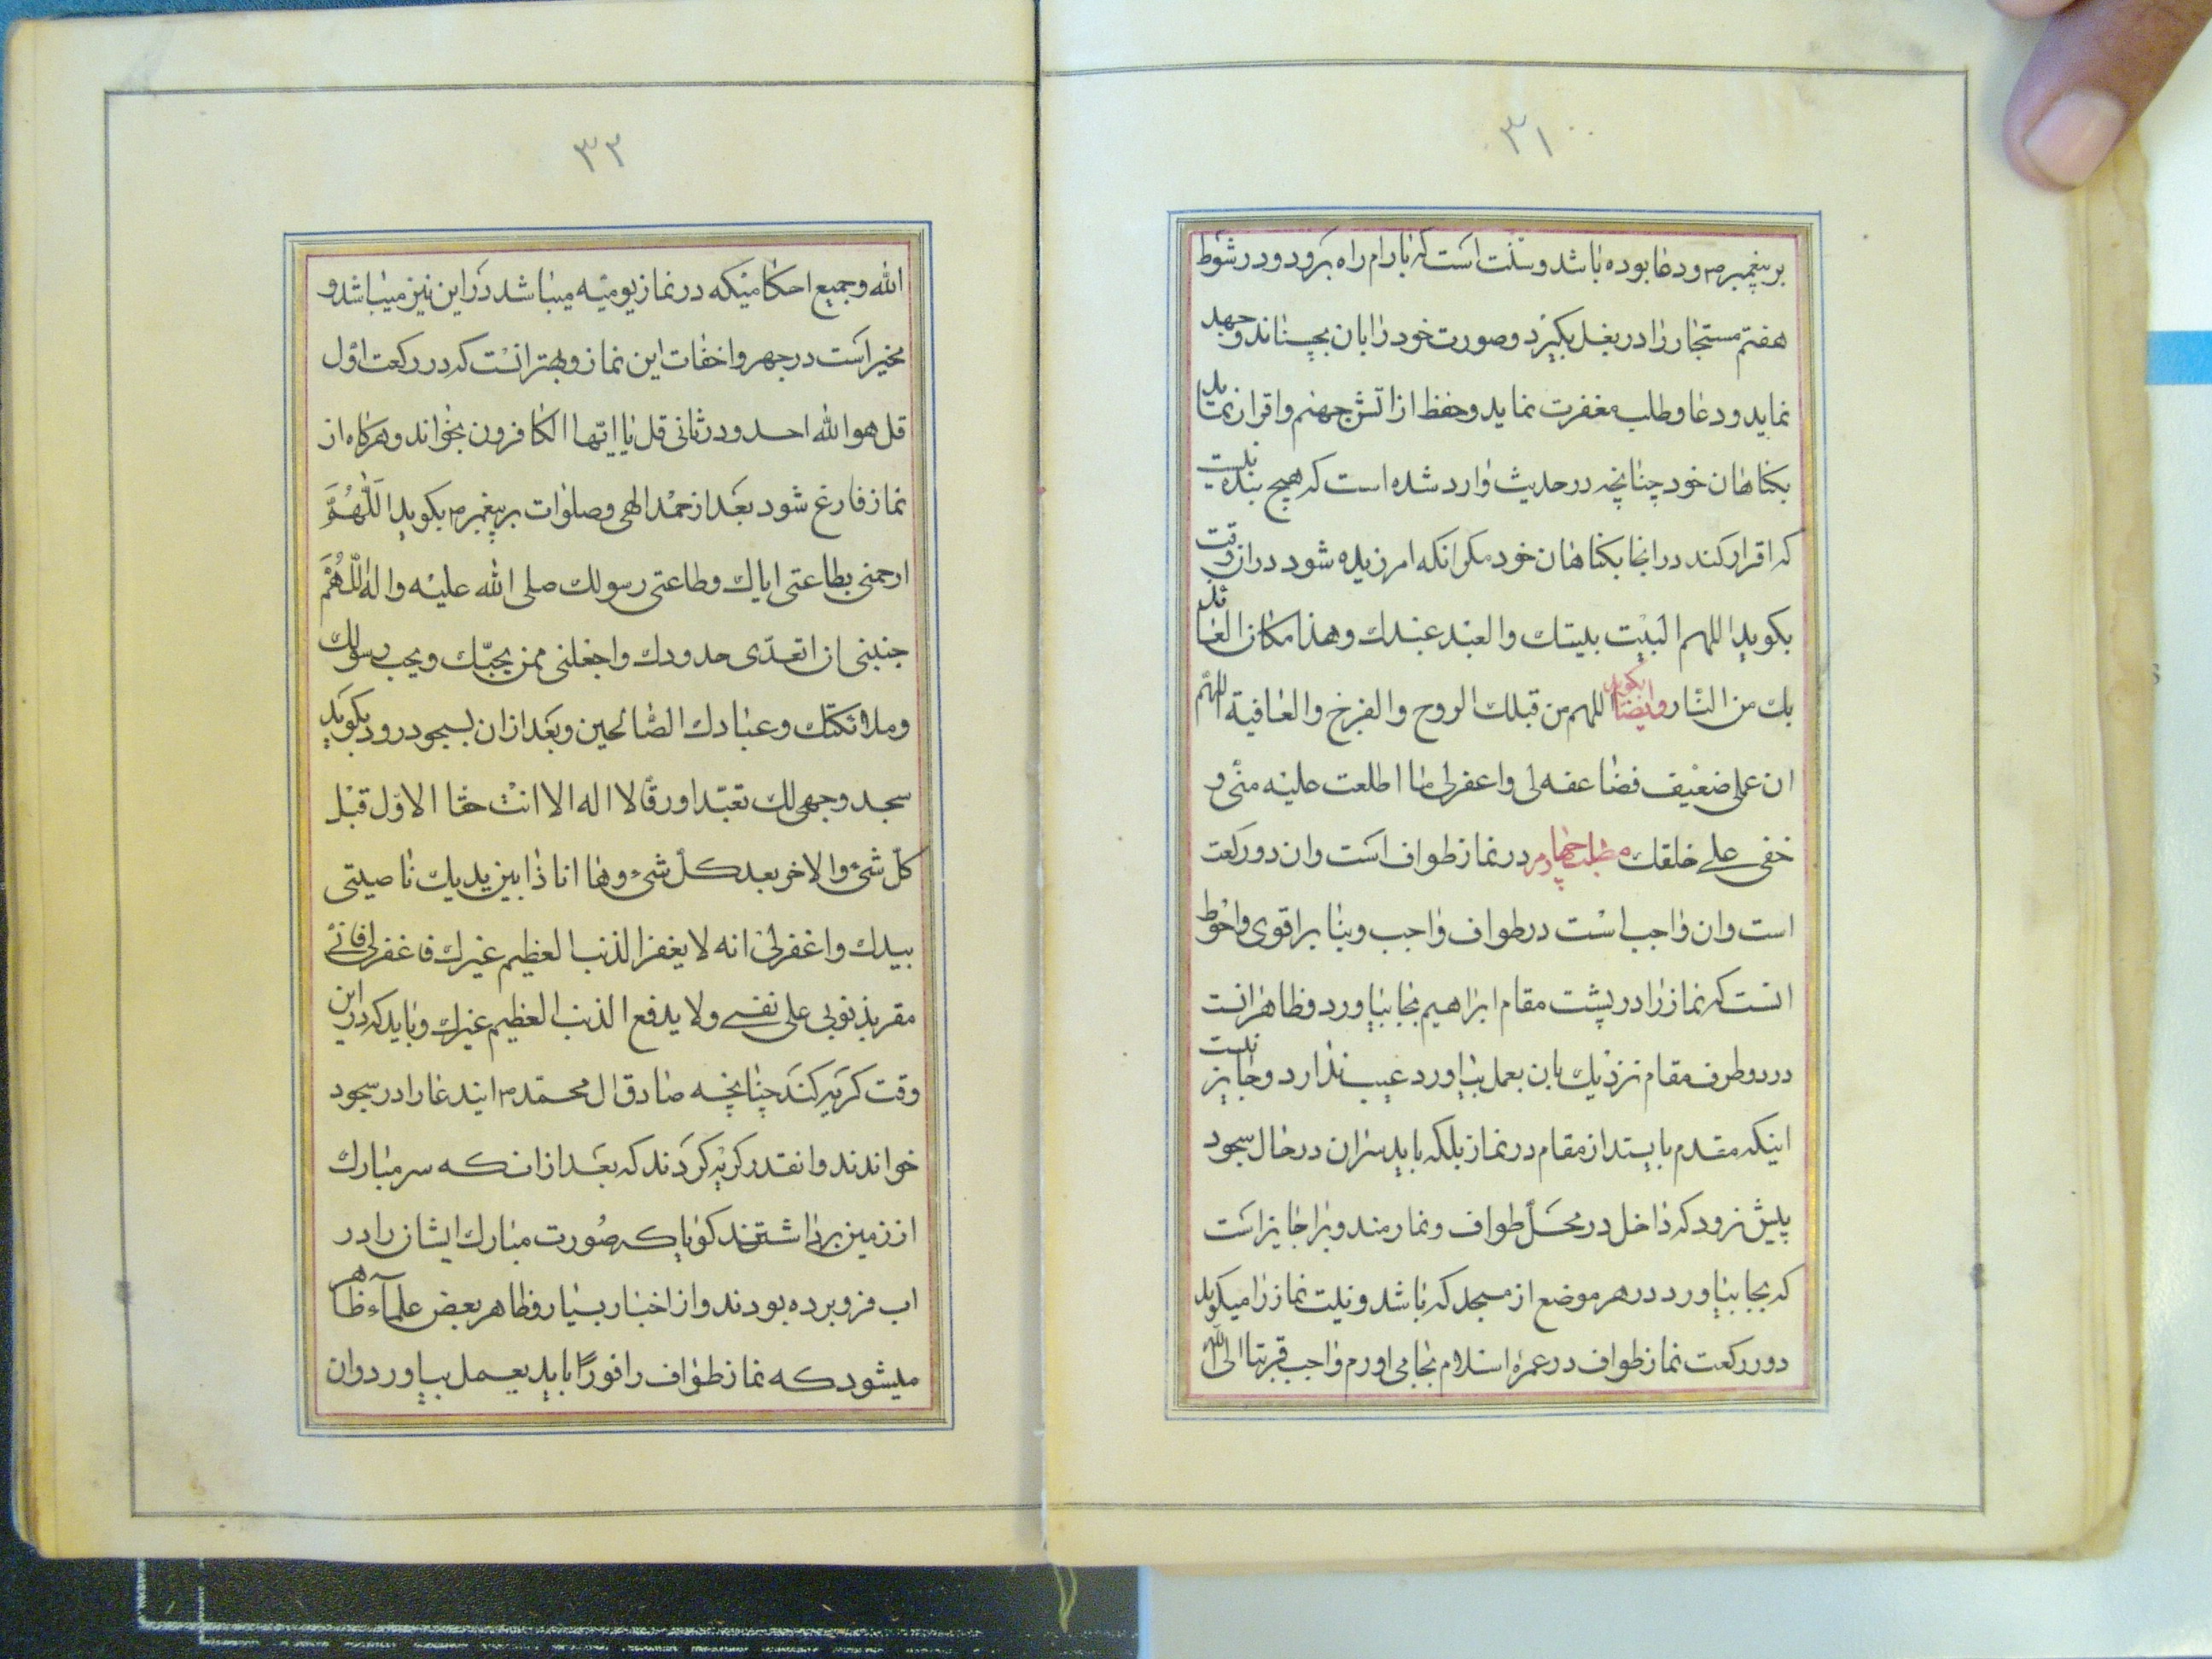 ۳۱
بر پیغمبر م ودعا بوده باشد وسنت است که بارام راه برود ودر شوط
هفتم مستجار را در بغل بکیرد وصورت خود را بان بچسباند وجهد
نماید ودعا وطلب مغفرت نماید وحفظ از اتش جهنم واقرار نماید
بکناهان خود چنانچه در حدیث وارد شده است که هیچ بنده نیست
که اقرار کند در انجا بکناهان خود مکر انکه امرزیده شود در انوقت
بکوید اللهم البیت بیتك والعبد عبدك وهذا مکان العائذ
بك من النار وایضا بکوید اللهم من قبلك الروح والفرخ والعافیة اللهم
ان عملی ضعیف فضاعفه لی واعفرلی ما اطلعت علیه منی و
خفی علی خلقك مطلب چهارم در نماز طواف است وان دو رکعت
است وان واجب است در طواف واجب وبنا بر اقوی واحوط
انست که نماز را در پشت مقام ابراهیم بجا بیاورد وظاهر انست
در دو طرف مقام نزدیك بان بعمل بیاورد عیب ندارد وجایز نیست
اینکه مقدم بایستد از مقام در نماز بلکه باید سر ان در حال سجود
پیش نرود که داخل در محل طواف ونمار مندوبرا جایز است
که بجا بیاورد در هر موضع از مسجد که باشد ونیت نماز را میکوید
دو رکعت نماز طواف در عمرۀ اسلام بجا می اورم واجب قربتا الی الله
۳۲
الله وجمیع احکامیکه در نماز یومیّه میباشد در این نیز میباشد و
مخیر است در جهر واخفات این نماز وبهتر انست که در رکعت اوّل
قل هو الله احد ودر ثانی قل یا ایّها الکافرون بخواند وهرکاه از
نماز فارغ شود بعد از حمد الهی وصلوات بر پیغمبر م بکوید اَللّهُمَّ
ارحمنی بطاعتی ایاك وطاعتی رسولك صلی الله علیه واله اللّهُمَّ
جنبنی ان اتعدّی حدودك واجعلنی ممن یحبّك ویحب رسولك
وملائکتك وعبادك الصّالحین وبعد از ان بسجود رود بکوید
سجد وجهی لك تعبّدا ورقّا لا اله الا انت حقا الاوّل قبل
کلّ شیء والاخر بعد کلّ شیء وها انا ذا بین یدیك ناصیتی
بیدك واغفرلی انه لا یغفر الذنب العظیم غیرك فاغفرلی فانی
مقر بذنوبی علی نفسی ولا یدفع الذنب العظیم غیرك وباید که در این
وقت کریه کند چنانچه صادق ال محمّد م ایندعا را در سجود
خواندند وانقدر کریه کردند که بعد از انکه سر مبارك
از زمین برداشتند کویا که صورت مبارك ایشان را در
اب فرو برده بودند واز اخبار بسیار وظاهر بعض علمآء ظاهر
میشود که نماز طواف را فورًا باید بعمل بیاورد وان